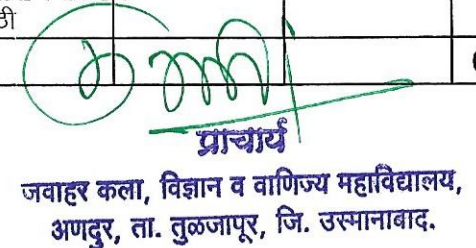 ठी
प्राचार्य
जवाहर कला, विज्ञान व वाणिज्य महाविद्यालय,
अणदुर, ता. तुळजापूर, जि. उस्मानाबाद.